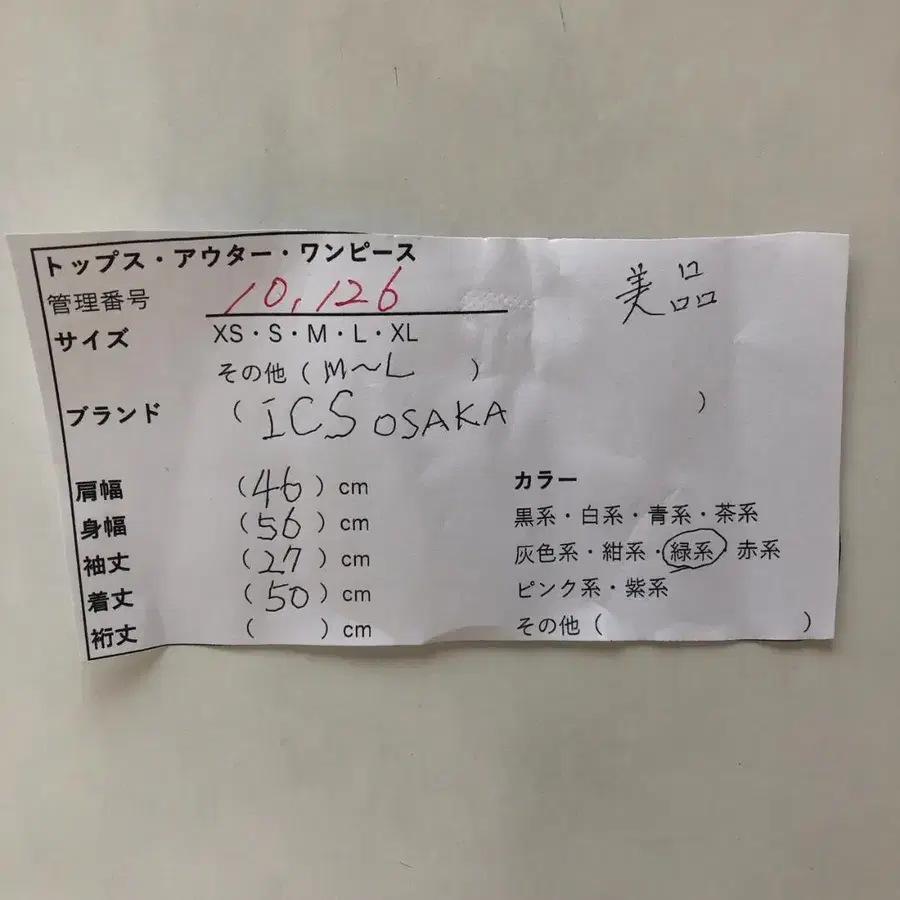 トップス・アウター・ワンピース
管理番号 10,126
美品
サイズ XS・S・M・L・XL
その他（M〜L）
ブランド （ICS OSAKA）
肩幅 （46）cm
身幅 （56）cm
袖丈 （27）cm
着丈 （50）cm
裄丈 （ ）cm
カラー
黒系・白系・青系・茶系
灰色系・紺系・緑系・赤系
ピンク系・紫系
その他（ ）